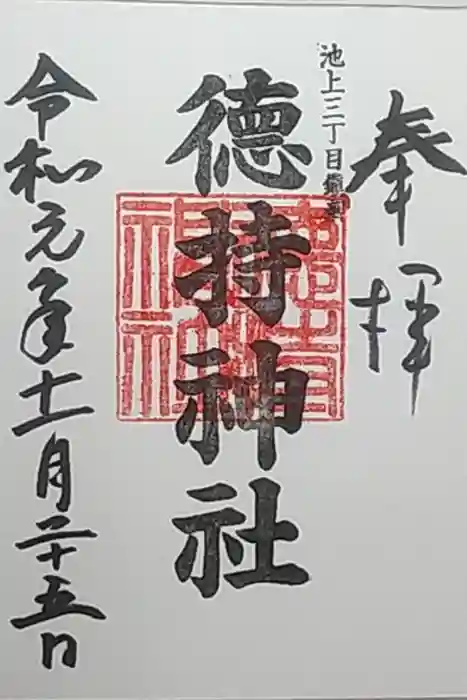 奉拝
池上三丁目鎮座
德持神社
令和元年十一月二十五日